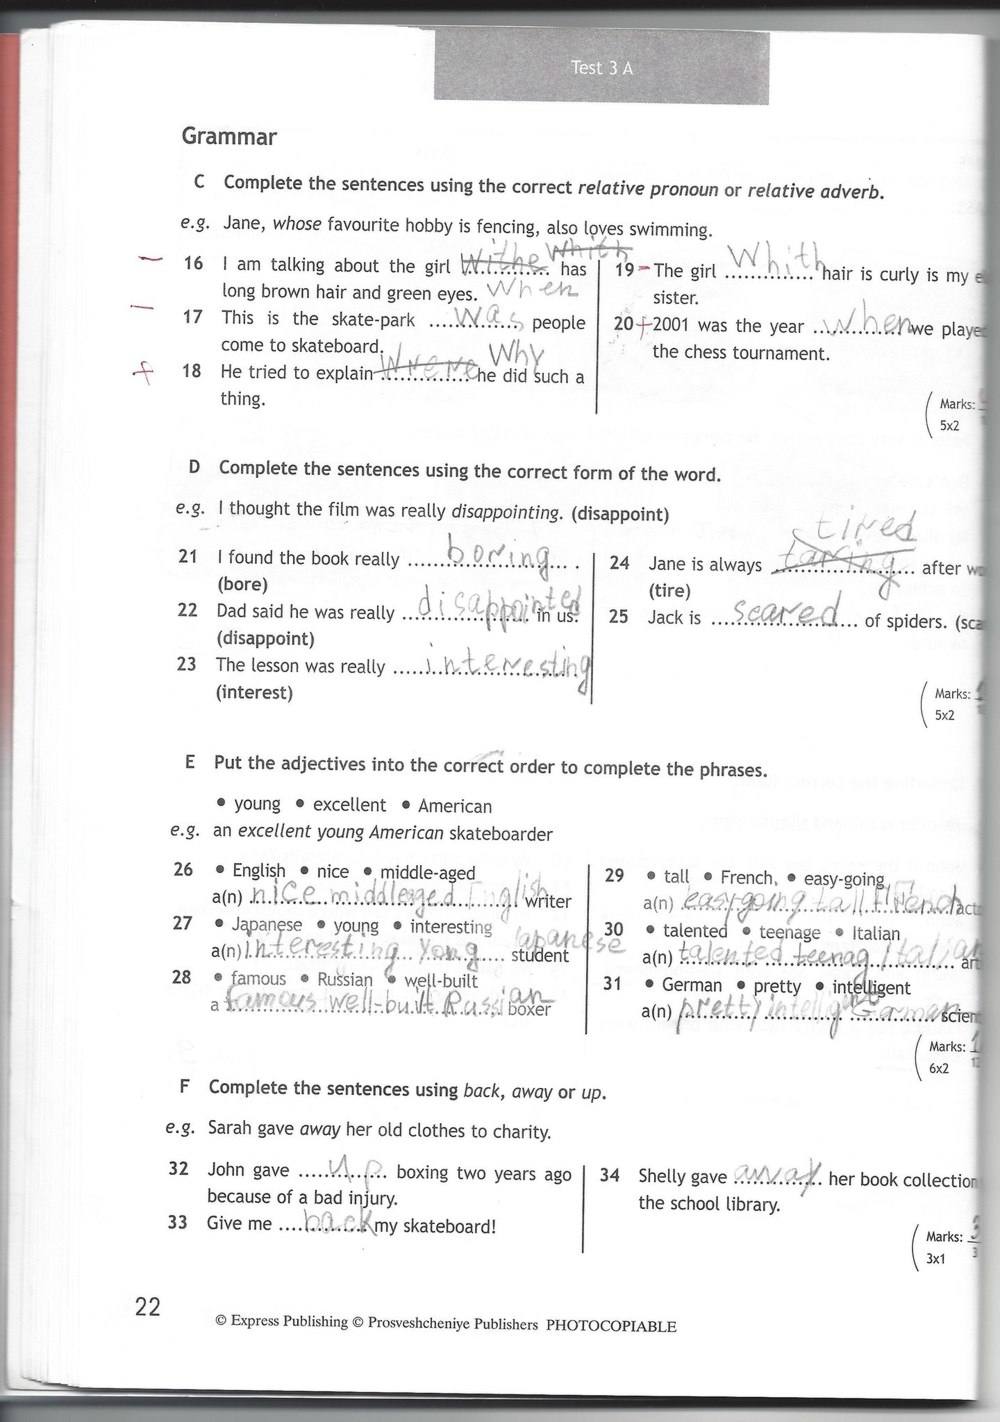 Test 3 A
Grammar
C Complete the sentences using the correct relative pronoun or relative adverb.
e.g. Jane, whose favourite hobby is fencing, also loves swimming.
16 I am talking about the girl Withe Whith has
long brown hair and green eyes. When
17 This is the skate-park ....was.... people
come to skateboard.
18 He tried to explain Wrere Why he did such a
thing.
19 – The girl Whith hair is curly is my
sister.
20 + 2001 was the year when we playe
the chess tournament.
Marks:
5x2
D Complete the sentences using the correct form of the word.
e.g. I thought the film was really disappointing. (disappoint)
21 I found the book really boring .
(bore)
22 Dad said he was really disappointed in us.
(disappoint)
23 The lesson was really interesting
(interest)
tired
24 Jane is always after
(tire)
25 Jack is scared of spiders. (sca
Marks:
5x2
E Put the adjectives into the correct order to complete the phrases.
• young • excellent • American
e.g. an excellent young American skateboarder
26 • English • nice • middle-aged
a(n) nice middleaged English writer
27 • Japanese • young • interesting
a(n) Interesting Yong Iapanese student
28 • famous • Russian • well-built
a famous well-built Russian boxer
29 • tall • French, • easy-going
a(n) easygoing tall French act
30 • talented • teenage • Italian
a(n) talented teenag Italian art
31 • German • pretty • intelligent
a(n) pretty intelligent German scien
Marks:
6x2
F Complete the sentences using back, away or up.
e.g. Sarah gave away her old clothes to charity.
32 John gave up boxing two years ago
because of a bad injury.
33 Give me back my skateboard!
34 Shelly gave away her book collection
the school library.
Marks: 3
3x1 3
22
© Express Publishing © Prosveshcheniye Publishers PHOTOCOPIABLE